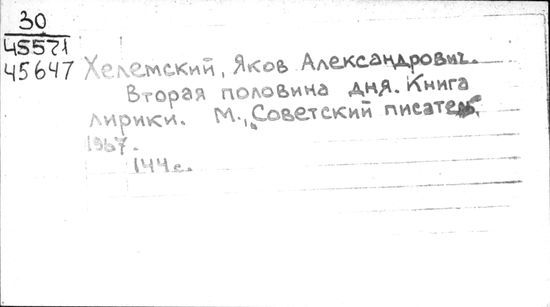 30
45571
45647
Хелемский, Яков Александрович.
Вторая половина дня. Книга
лирики. М., „Советский писатель",
1967.
144 с.